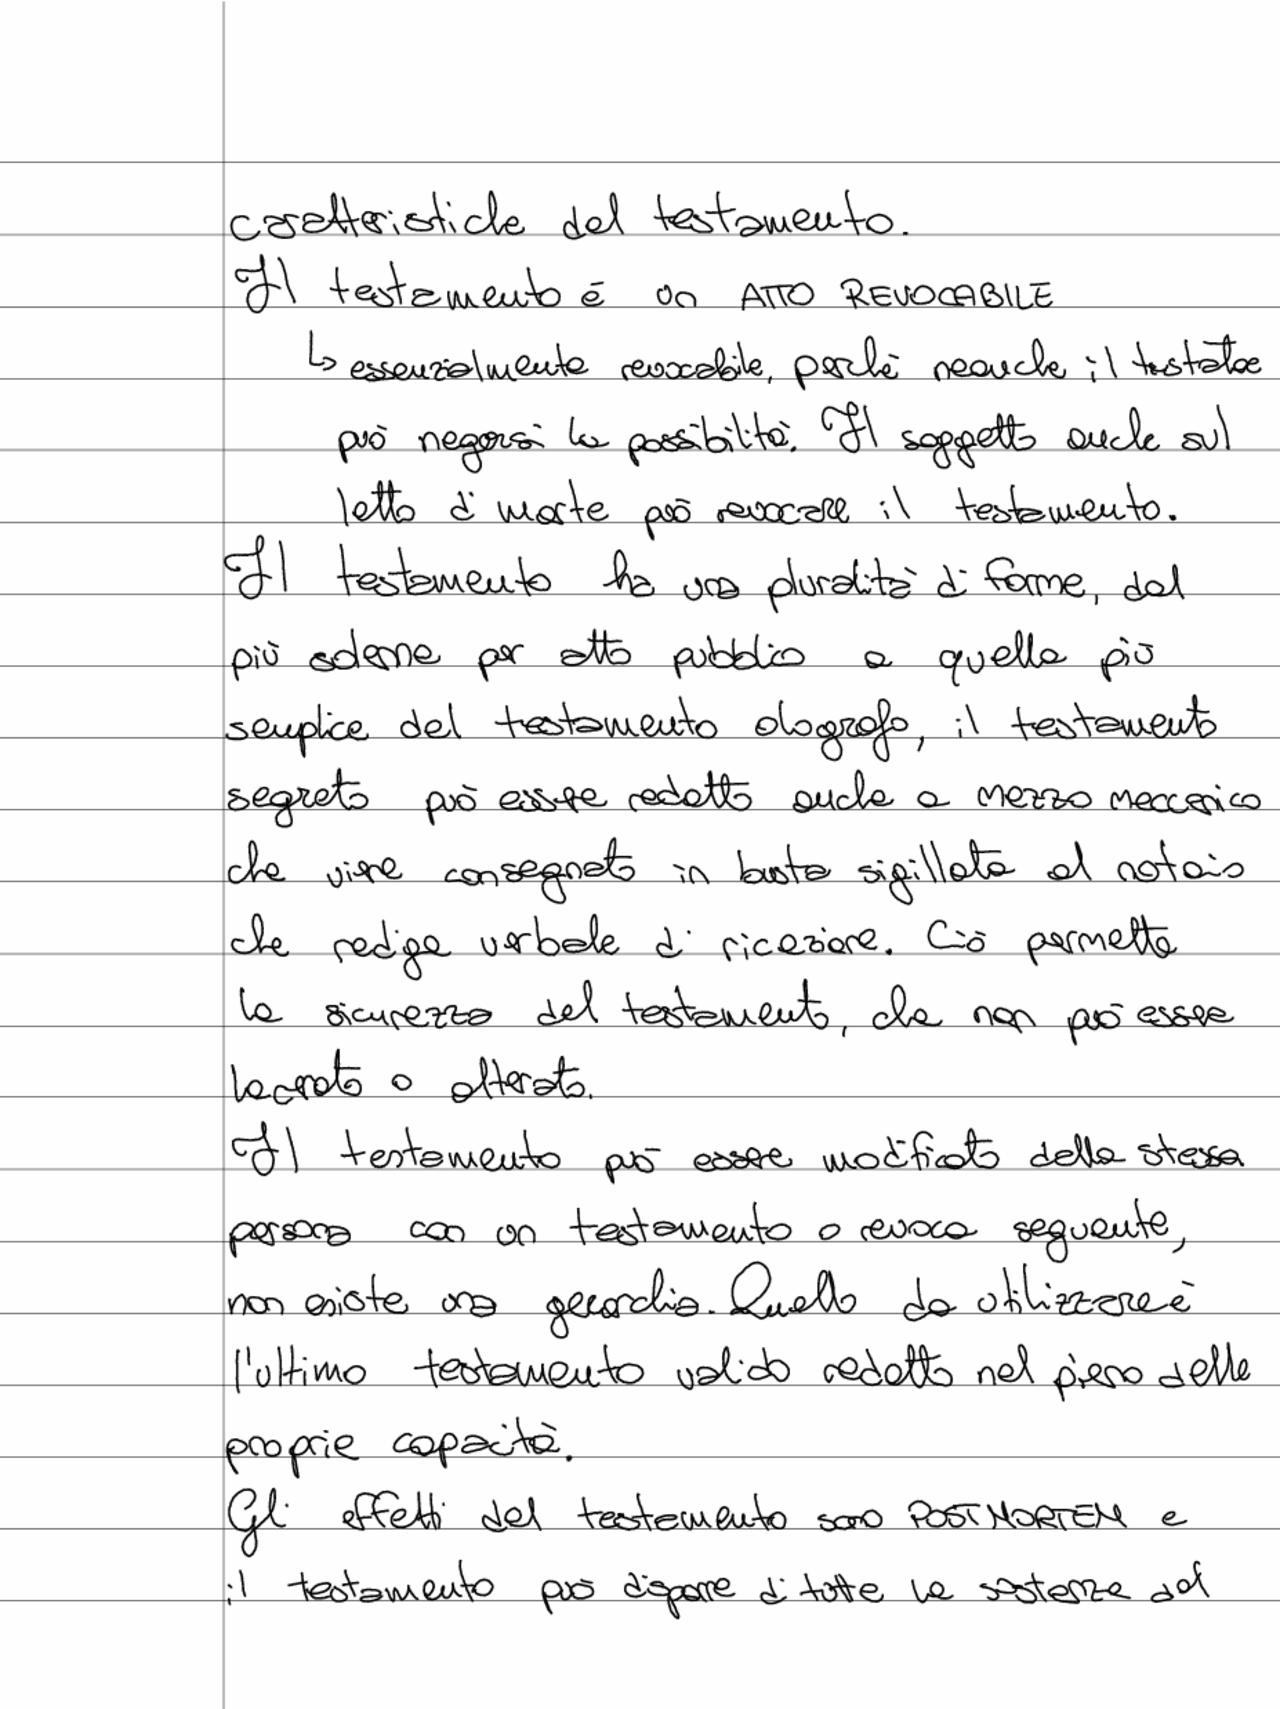 caratteristiche del testamento.
Il testamento è un ATTO REVOCABILE
↳ essenzialmente revocabile, perchè neanche il testatore
può negarsi la possibilità. Il soggetto anche sul
letto di morte può revocare il testamento.
Il testamento ha una pluralità di forme, dal
più solenne per atto pubblico a quella più
semplice del testamento olografo, il testamento
segreto può essere redatto anche a mezzo meccanico
che viene consegnato in busta sigillata al notaio
che redige verbale di ricezione. Ciò permette
la sicurezza del testamento, che non può essere
lacerato o alterato.
Il testamento può essere modificato dalla stessa
persona con un testamento o revoca seguente,
non esiste una gerarchia. Quello da utilizzare è
l'ultimo testamento valido redatto nel pieno delle
proprie capacità.
Gli effetti del testamento sono POST MORTEM e
il testamento può disporre di tutte le sostanze del